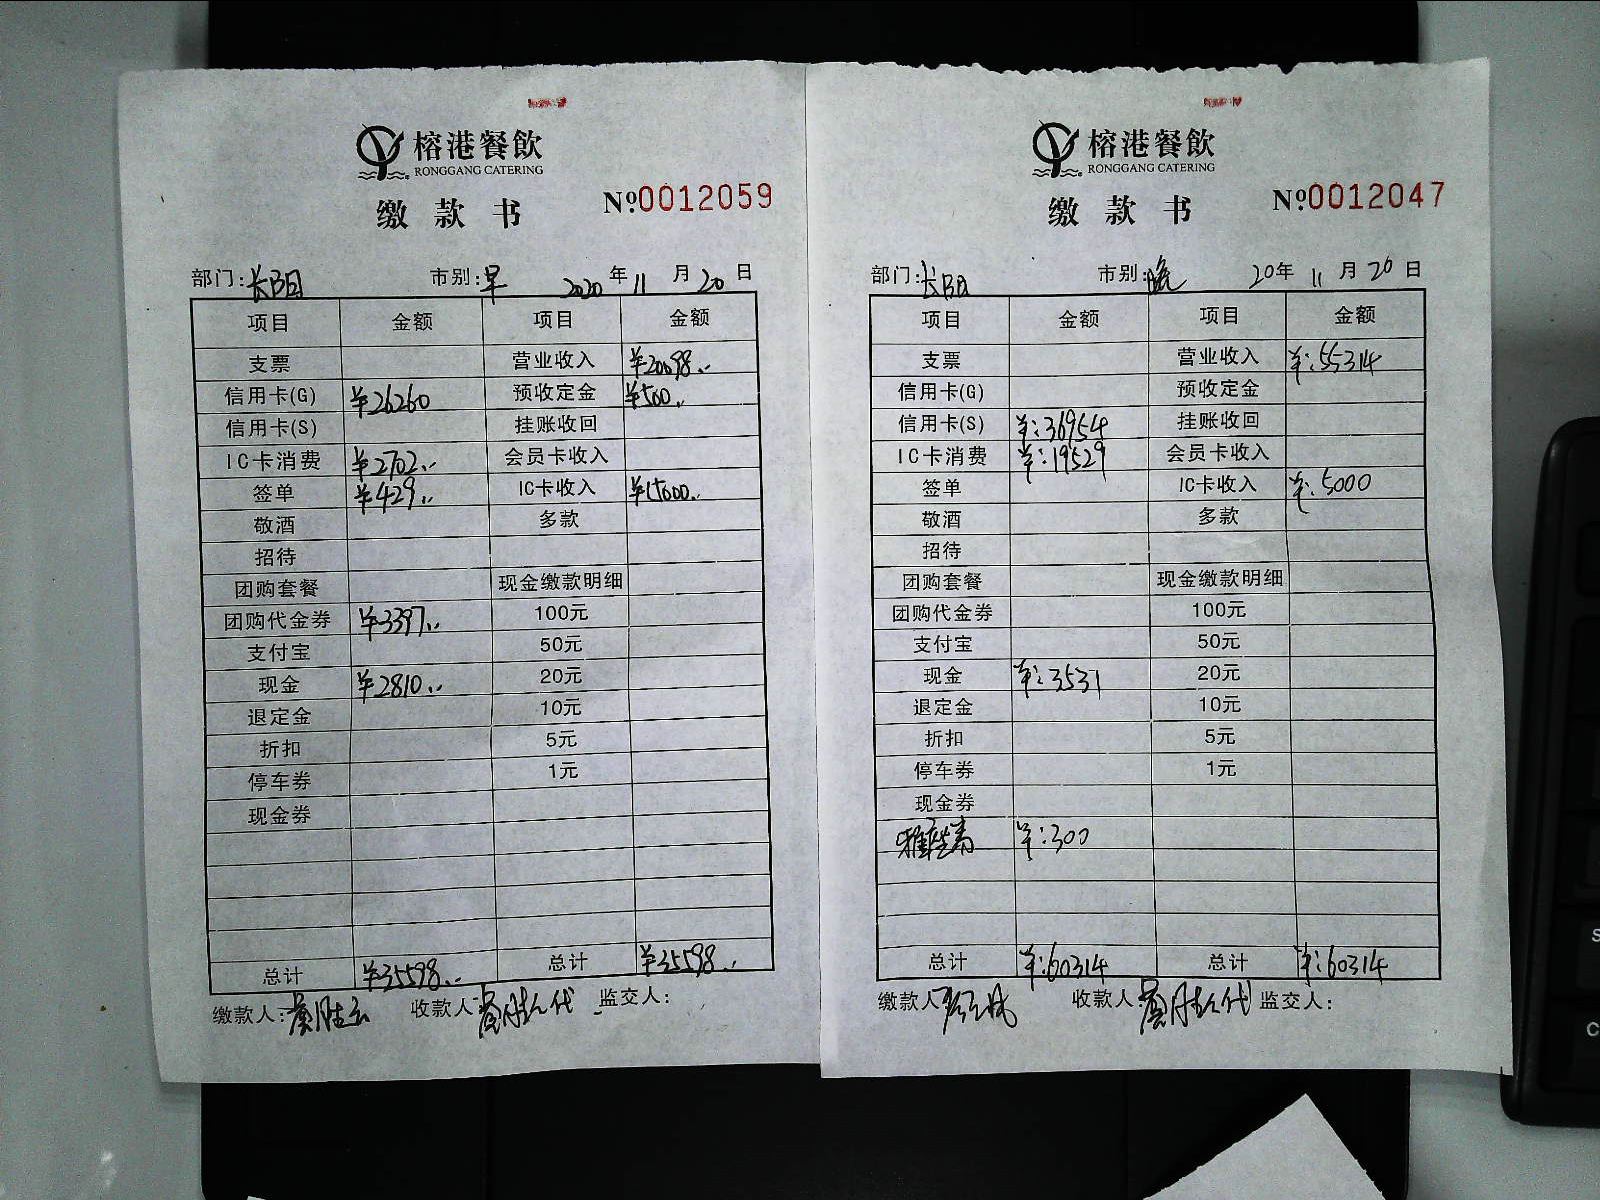 榕港餐飲
RONGGANG CATERING
缴款书
№0012059
部门:长阳 市别:早 2020年11月20日
项目 金额 项目 金额
支票 营业收入 ¥20098..
信用卡(G) ¥26260 预收定金 ¥500..
信用卡(S) 挂账收回
IC卡消费 ¥2702.. 会员卡收入
签单 ¥429.. IC卡收入 ¥15000..
敬酒 多款
招待
团购套餐 现金缴款明细
团购代金券 ¥3397.. 100元
支付宝 50元
现金 ¥2810.. 20元
退定金 10元
折扣 5元
停车券 1元
现金券
总计 ¥35598.. 总计 ¥35598..
缴款人: 收款人 代 监交人:
榕港餐飲
RONGGANG CATERING
缴款书
№0012047
部门:长阳 市别:晚 20年11月20日
项目 金额 项目 金额
支票 营业收入 ¥:55314
信用卡(G) 预收定金
信用卡(S) ¥:36954 挂账收回
IC卡消费 ¥:19529 会员卡收入
签单 IC卡收入 ¥:5000
敬酒 多款
招待
团购套餐 现金缴款明细
团购代金券 100元
支付宝 50元
现金 ¥:3531 20元
退定金 10元
折扣 5元
停车券 1元
现金券
¥:300
总计 ¥:60314 总计 ¥:60314
缴款人 收款人 代 监交人: